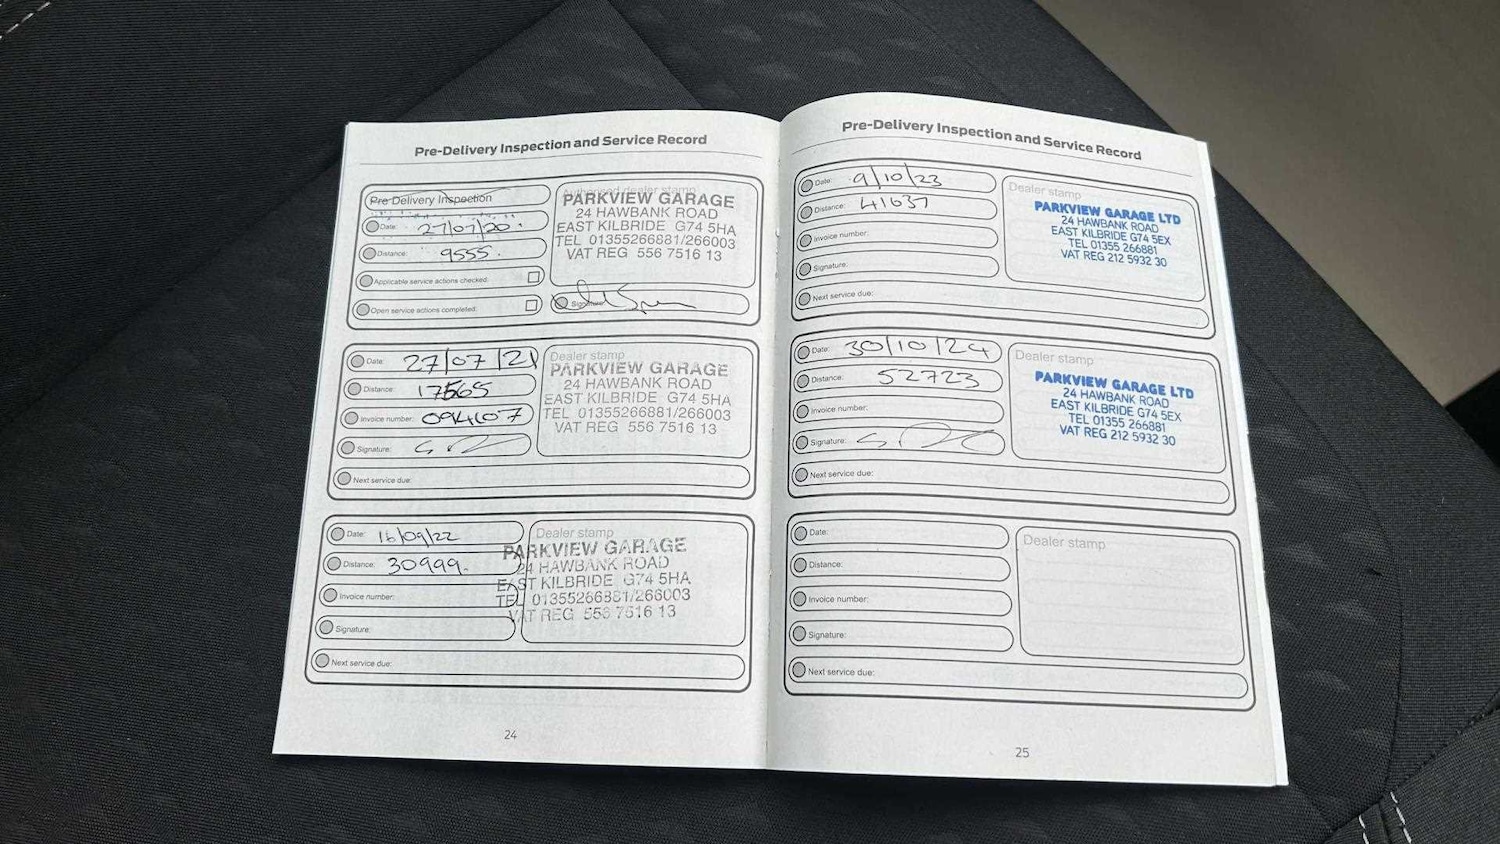 Pre-Delivery Inspection and Service Record
Pre Delivery Inspection
Date: 27/07/20
Distance: 9555.
Applicable service actions checked:
Open service actions completed:
Authorised dealer stamp
PARKVIEW GARAGE
24 HAWBANK ROAD
EAST KILBRIDE G74 5HA
TEL 01355266881/266003
VAT REG 556 7516 13
Signature:
Date: 27/07/21
Distance: 17565
Invoice number: 094107
Signature:
Next service due:
Dealer stamp
PARKVIEW GARAGE
24 HAWBANK ROAD
EAST KILBRIDE G74 5HA
TEL 01355266881/266003
VAT REG 556 7516 13
Date: 16/09/22
Distance: 30999.
Invoice number:
Signature:
Next service due:
Dealer stamp
PARKVIEW GARAGE
24 HAWBANK ROAD
EAST KILBRIDE G74 5HA
TEL 01355266881/266003
VAT REG 556 7516 13
24
Pre-Delivery Inspection and Service Record
Date: 9/10/23
Distance: 41637
Invoice number:
Signature:
Next service due:
Dealer stamp
PARKVIEW GARAGE LTD
24 HAWBANK ROAD
EAST KILBRIDE G74 5EX
TEL 01355 266881
VAT REG 212 5932 30
Date: 30/10/24
Distance: 52723
Invoice number:
Signature:
Next service due:
Dealer stamp
PARKVIEW GARAGE LTD
24 HAWBANK ROAD
EAST KILBRIDE G74 5EX
TEL 01355 266881
VAT REG 212 5932 30
Date:
Distance:
Invoice number:
Signature:
Next service due:
Dealer stamp
25